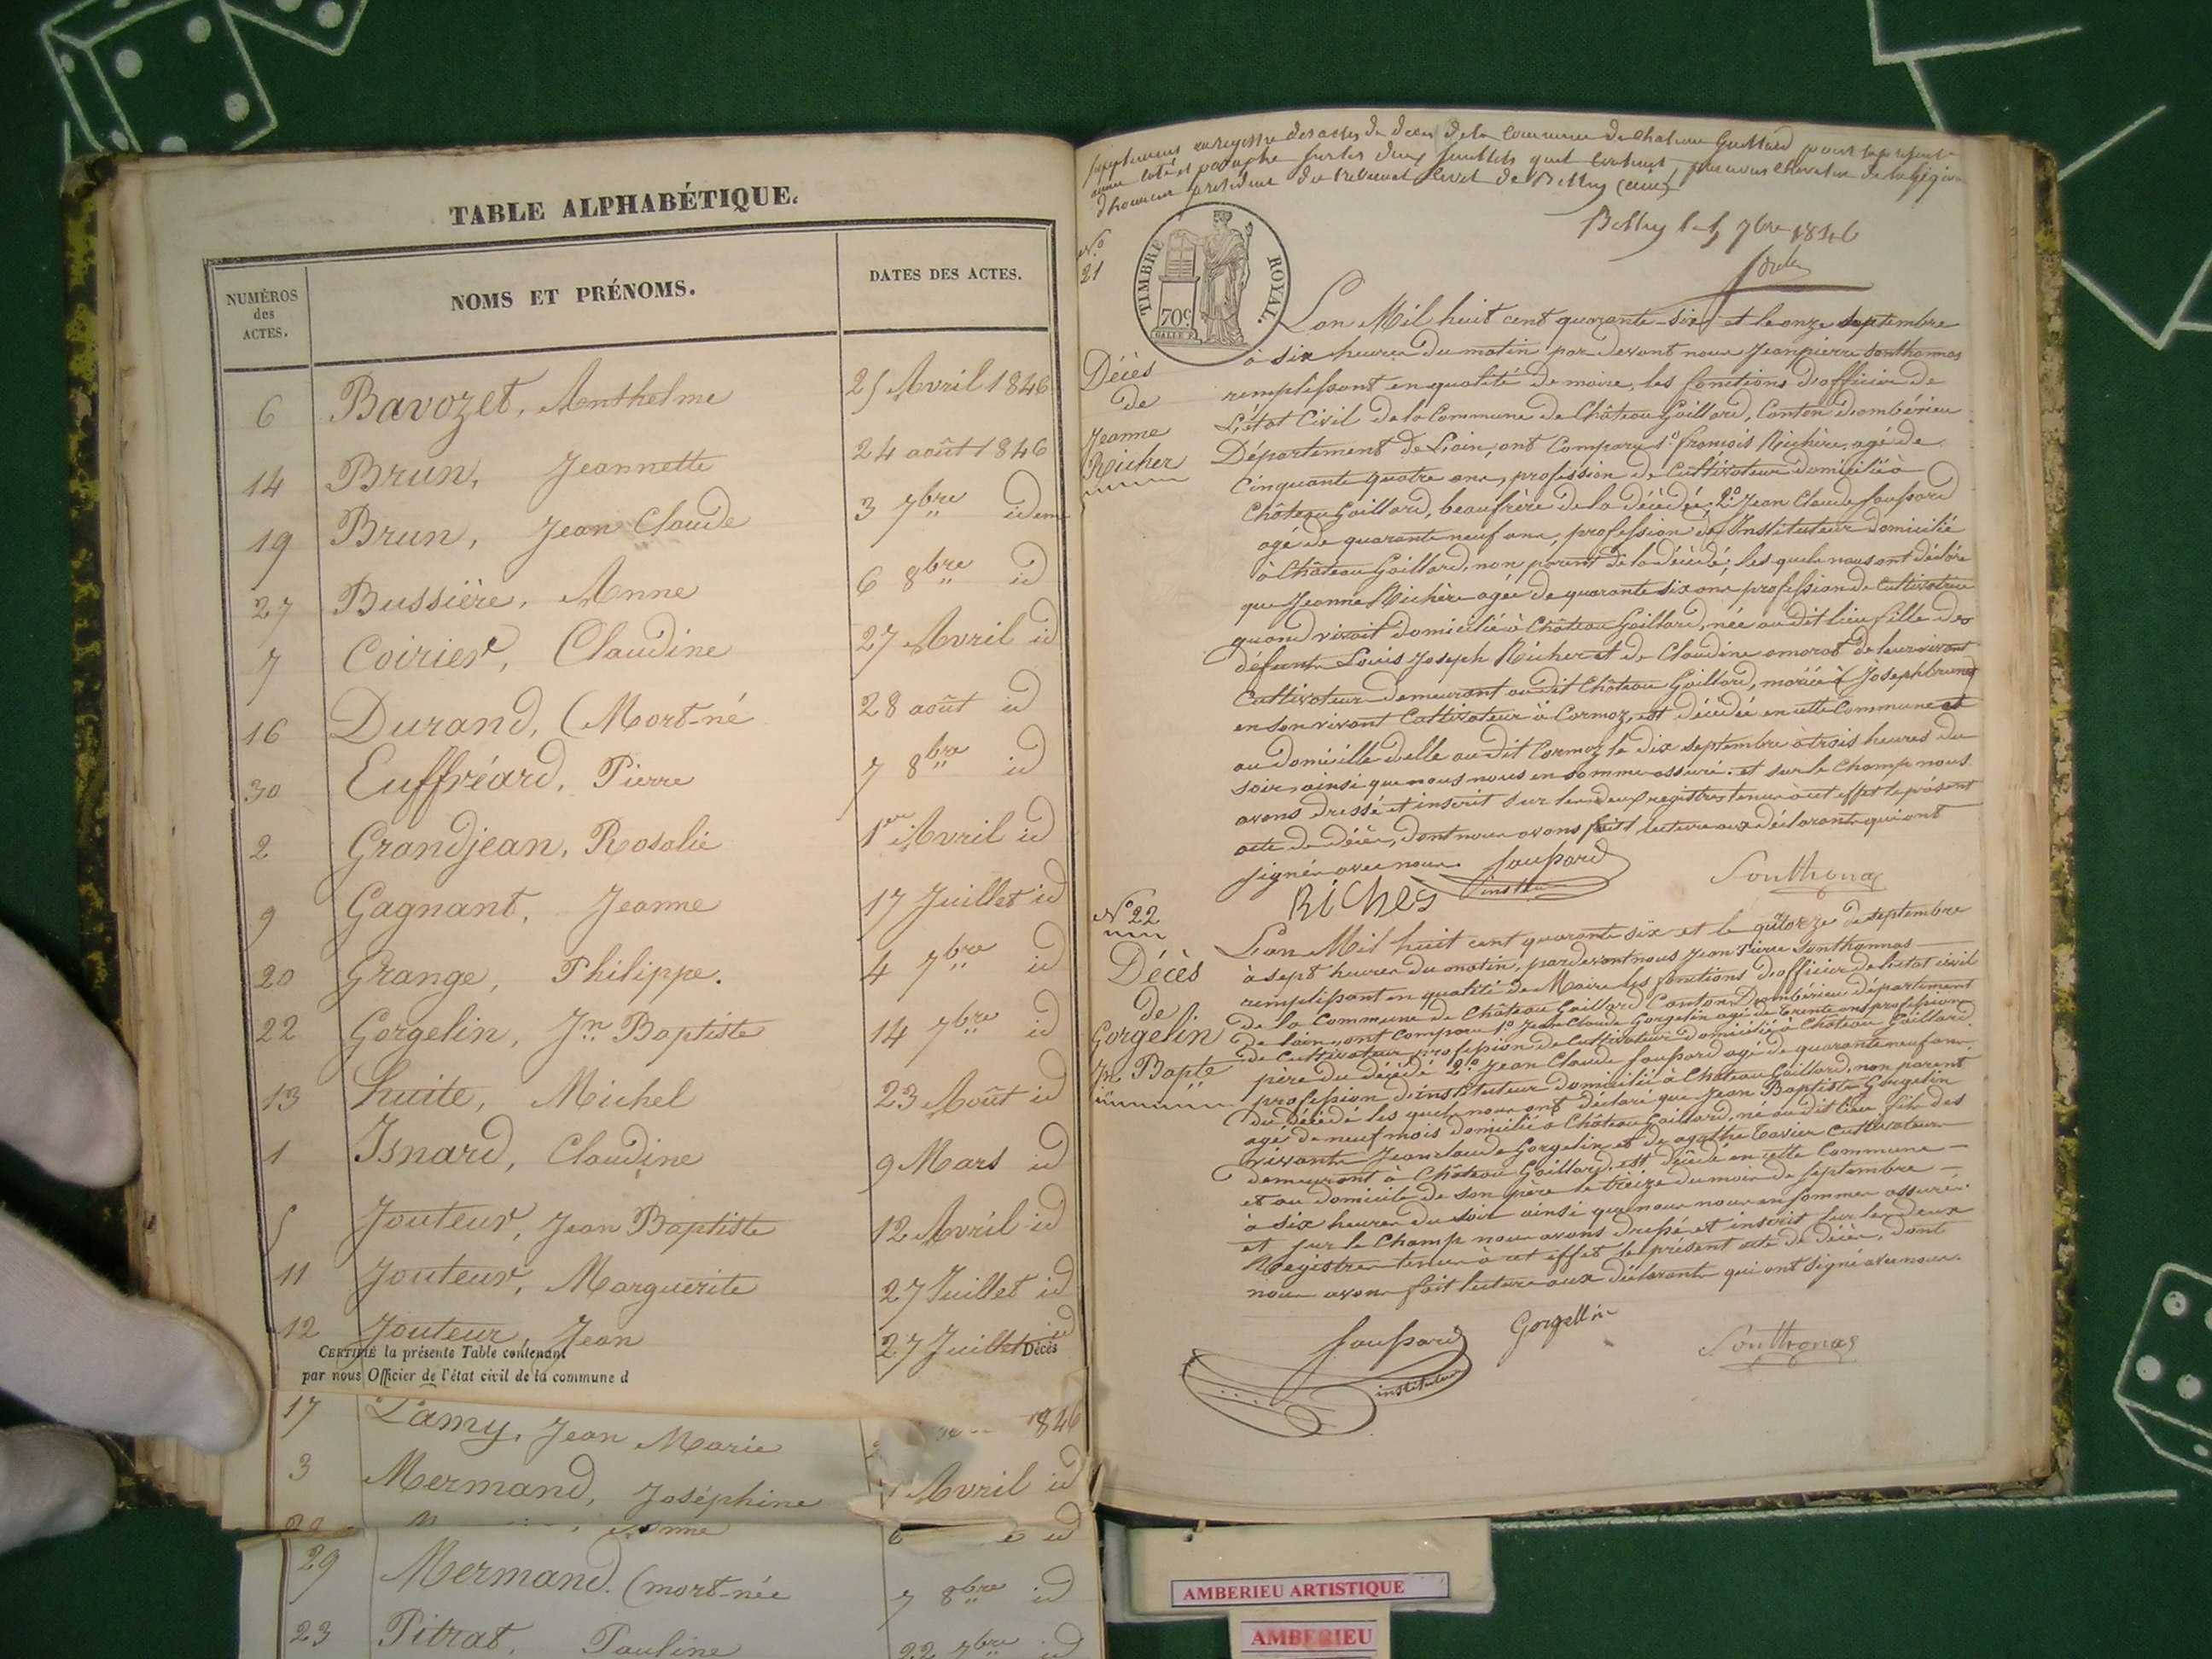 TABLE ALPHABÉTIQUE.
NUMÉROS des ACTES.
NOMS ET PRÉNOMS.
DATES DES ACTES.
6 Bavozet, Anthelme 25 Avril 1846
14 Brun, Jeannette 24 août 1846
19 Brun, Jean Claude 3 7bre idem
27 Bussière, Anne 6 8bre id
7 Coirier, Claudine 27 Avril id
16 Durand, (Mort-né 28 août id
30 Euffréard, Pierre 7 8bre id
2 Grandjean, Rosalie 1er Avril id
9 Gagnant, Jeanne 17 Juillet id
20 Grange, Philippe. 4 7bre id
22 Gorgelin, Jn Baptiste 14 7bre id
13 Huite, Michel 23 Août id
1 Isnard, Claudine 9 Mars id
5 Jouteur, Jean Baptiste 12 Avril id
11 Jouteur, Marguerite 27 Juillet id
12 Jouteur, Jean 27 Juillet id
CERTIFIÉ la présente Table contenant Décès
par nous Officier de l'état civil de la commune d
17 Lamy, Jean Marie 1846
3 Mermand, Joséphine Avril id
Anne id
29 Mermand. (mort-née 7 8bre id
23 Pitrat, Pauline 22 7bre id
Supplement au registre des actes de décès de la Commune de Chateau Gaillard pour la présente
année coté et paraphé sur les deux feuillets qu'il contient par nous Chevalier de la Légion
d'honneur president du tribunal civil de Belley (ain)
Belley le 5 7bre 1846
No 21
TIMBRE ROYAL.
70c
Décès
de
Jeanne
Richer
L'an Mil huit cent quarante-six et le onze septembre
à six heures du matin par devant nous Jean pierre Sonthonnas
remplissant en qualité de maire, les fonctions d'officier de
L'état Civil de la Commune de Château Gaillard, Canton d'ambérieu
Département de L'ain, ont Comparu 1o françois Richère, agé de
Cinquante quatre ans, profession de Cultivateur domicilié à
Château Gaillard, beaufrère de la décédée, 2o Jean Claude faussard
agé de quarante neuf ans, profession d'Instituteur domicilié
à Château Gaillard, non parent de la décédé, les quels nous ont déclaré
que Jeanne Richère agée de quarante six ans profession de Cultivatrice
quand vivait domicilié à Château Gaillard, née au dit lieu fille de
défunts Louis Joseph Richer et de Claudine amorat de leur vivant
Cultivateur demeurant au dit Château Gaillard, mariée à Joseph brunet
en son vivant Cultivateur à Cormoz, est décédée en cette Commune et
au domicille d'elle au dit Cormoz le dix septembre à trois heures du
soir, ainsi que nous nous en somme assuré. et sur le Champ nous
avons dressé et inscrit sur les deux registres tenus à cet effet le présent
acte de décès, dont nous avons fait lecture aux déclarants qui ont
signés avec nous. faussard Sonthonas
RICHES instr
No 22
Décès
de
Gorgelin
Jn Bapte
L'an Mil huit cent quarante six et le quatorze de septembre
à sept heures du matin, par devant nous Jean Pierre Sonthonnas
remplissant en qualité de Maire les fonctions d'officier de l'état civil
de la Commune de Château Gaillard Canton D'ambérieu département
de l'ain, ont comparu 1o Jean Claude Gorgelin agé de trente ans profession
de Cultivateur profession de Cultivateur domicilié à Château Gaillard.
père du décédé 2o Jean Claude faussard agé de quarante neuf ans.
profession d'instituteur domicilié à Château Gaillard, non parent
du décédé les quels nous ont déclaré que Jean Baptiste Gorgelin
agé de neuf mois domicilié à Château Gaillard, né au dit lieu fils des
vivants Jean claude Gorgelin et de agathe Tavier Cultivateurs
demeurant à Château Gaillard, est décédé en cette Commune
et au domicile de son père le treize du mois de Septembre
à six heures du soir ainsi que nous nous en sommes assuré.
et sur le Champ nous avons dressé et inscrit sur les deux
Registres tenus à cet effet le présent acte de décès, dont
nous avons fait lecture aux déclarants qui ont signé avec nous.
faussard Gorgellin Sonthonas
instituteur
AMBERIEU ARTISTIQUE
AMBERIEU